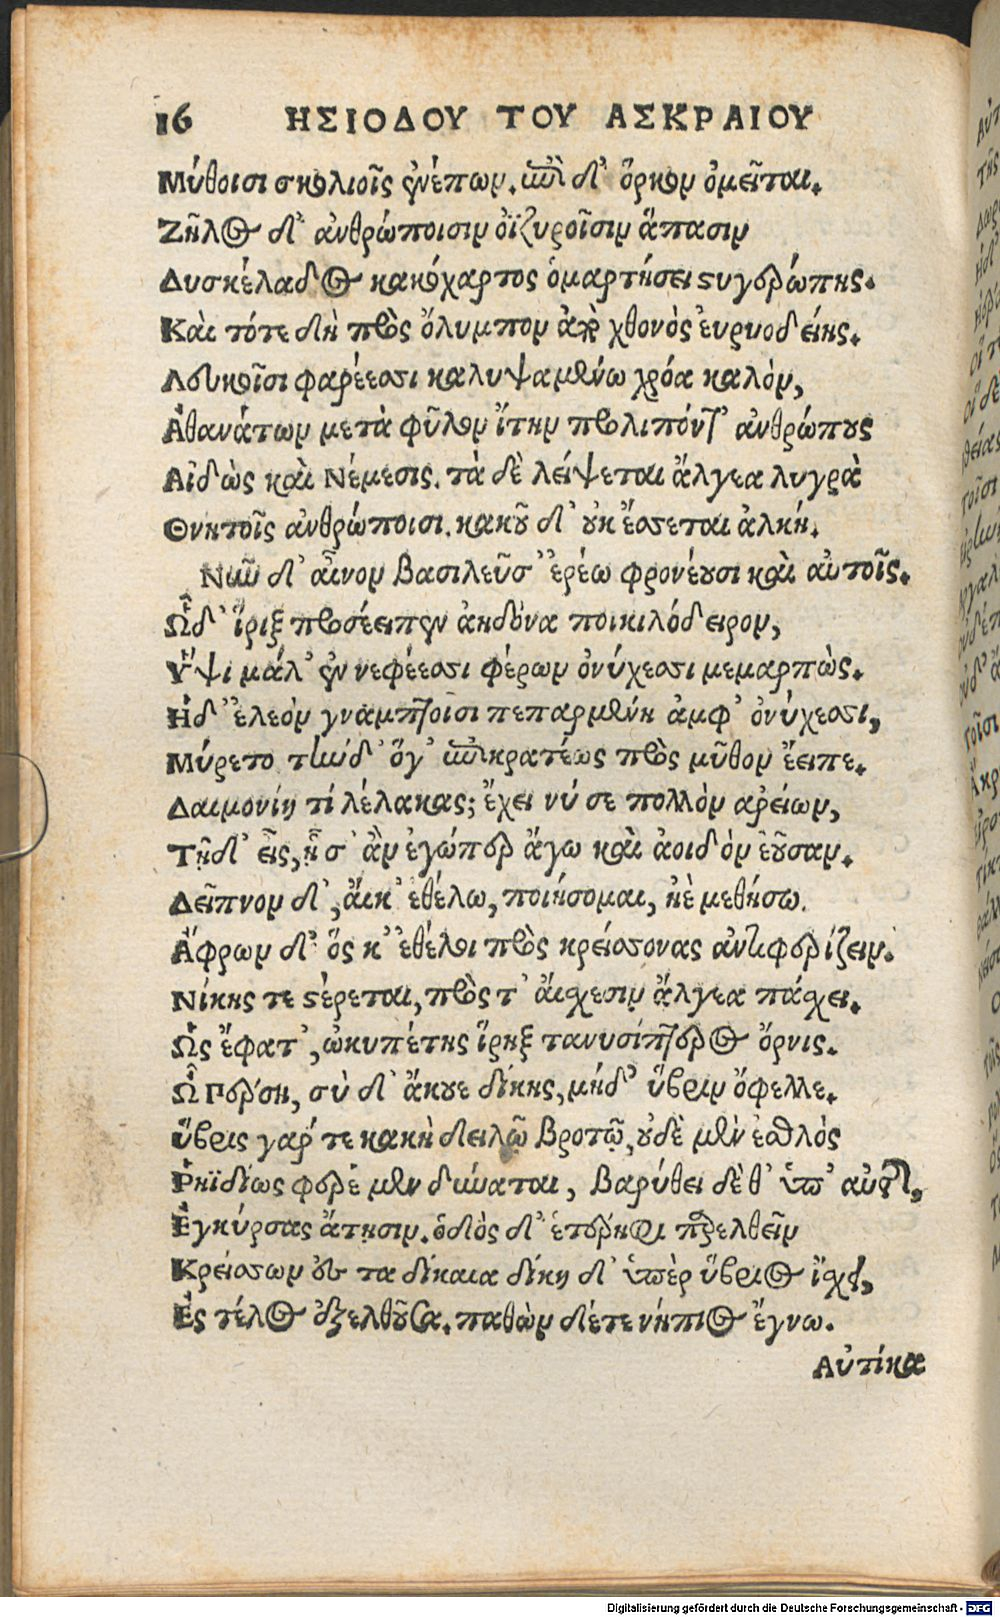 16 ΗΣΙΟΔΟΥ ΤΟΥ ΑΣΚΡΑΙΟΥ
Μύθοισι σκολιοῖς ἐνέπων. ἐπὶ δ' ὅρκον ὀμεῖται.
Ζῆλος δ' ἀνθρώποισιν ὀϊζυροῖσιν ἅπασιν
Δυσκέλαδος κακόχαρτος ὁμαρτήσει στυγερώπης.
Καὶ τότε δὴ πρὸς ὄλυμπον ἀπὸ χθονὸς ἐυρυοδείης.
Λευκοῖσι φαρέεσσι καλυψαμένω χρόα καλὸν,
Ἀθανάτων μετὰ φῦλον ἴτην προλιπόντ' ἀνθρώπους
Αἰδὼς καὶ Νέμεσις. τὰ δὲ λείψεται ἄλγεα λυγρὰ
Θνητοῖς ἀνθρώποισι. κακοῦ δ' οὐκ ἔσσεται ἀλκή.
Νῦν δ' αἶνον βασιλεῦσ' ἐρέω φρονέουσι καὶ αὐτοῖς.
Ὧδ' ἵρηξ προσέειπεν ἀηδόνα ποικιλόδειρον,
Ὕψι μάλ' ἐν νεφέεσσι φέρων ὀνύχεσσι μεμαρπὼς.
Ἡδ' ἐλεὸν γναμπτοῖσι πεπαρμένη ἀμφ' ὀνύχεσσι,
Μύρετο τὴν δ' ὅγ' ἐπικρατέως πρὸς μῦθον ἔειπε.
Δαιμονίη τί λέλακας; ἔχει νύ σε πολλὸν αρείων,
Τῇ δ' εἶς, ᾗ σ' ἂν ἐγώπερ ἄγω καὶ ἀοιδὸν ἐοῦσαν.
Δεῖπνον δ', ἄικ' ἐθέλω, ποιήσομαι, ἠὲ μεθήσω.
Ἄφρων δ' ὅς κ' ἐθέλοι πρὸς κρείσσονας ἀντιφερίζειν.
Νίκης τε στέρεται, πρὸς τ' ἄισχεσιν ἄλγεα πάσχει.
Ὣς ἔφατ', ὠκυπέτης ἵρηξ τανυσίπτερος ὄρνις.
Ὦ Πέρση, σὺ δ' ἄκουε δίκης, μήδ' ὕβριν ὄφελλε.
ὕβρις γάρ τε κακὴ δειλῷ βροτῷ, οὐδὲ μὲν ἐσθλὸς
Ῥηϊδίως φερέμεν δύναται, βαρύθει δὲ θ' ὑπ' αὐτῆς,
Ἐγκύρσας ἄτῃσιν. ὁδὸς δ' ἑτέρηφι παρελθεῖν
Κρείσσων ἐς τα δίκαια δίκη δ' ὑπὲρ ὕβριος ἴσχει,
Ἐς τέλος ἐξελθοῦσα. παθὼν δέ τε νήπιος ἔγνω.
Αὐτίκα